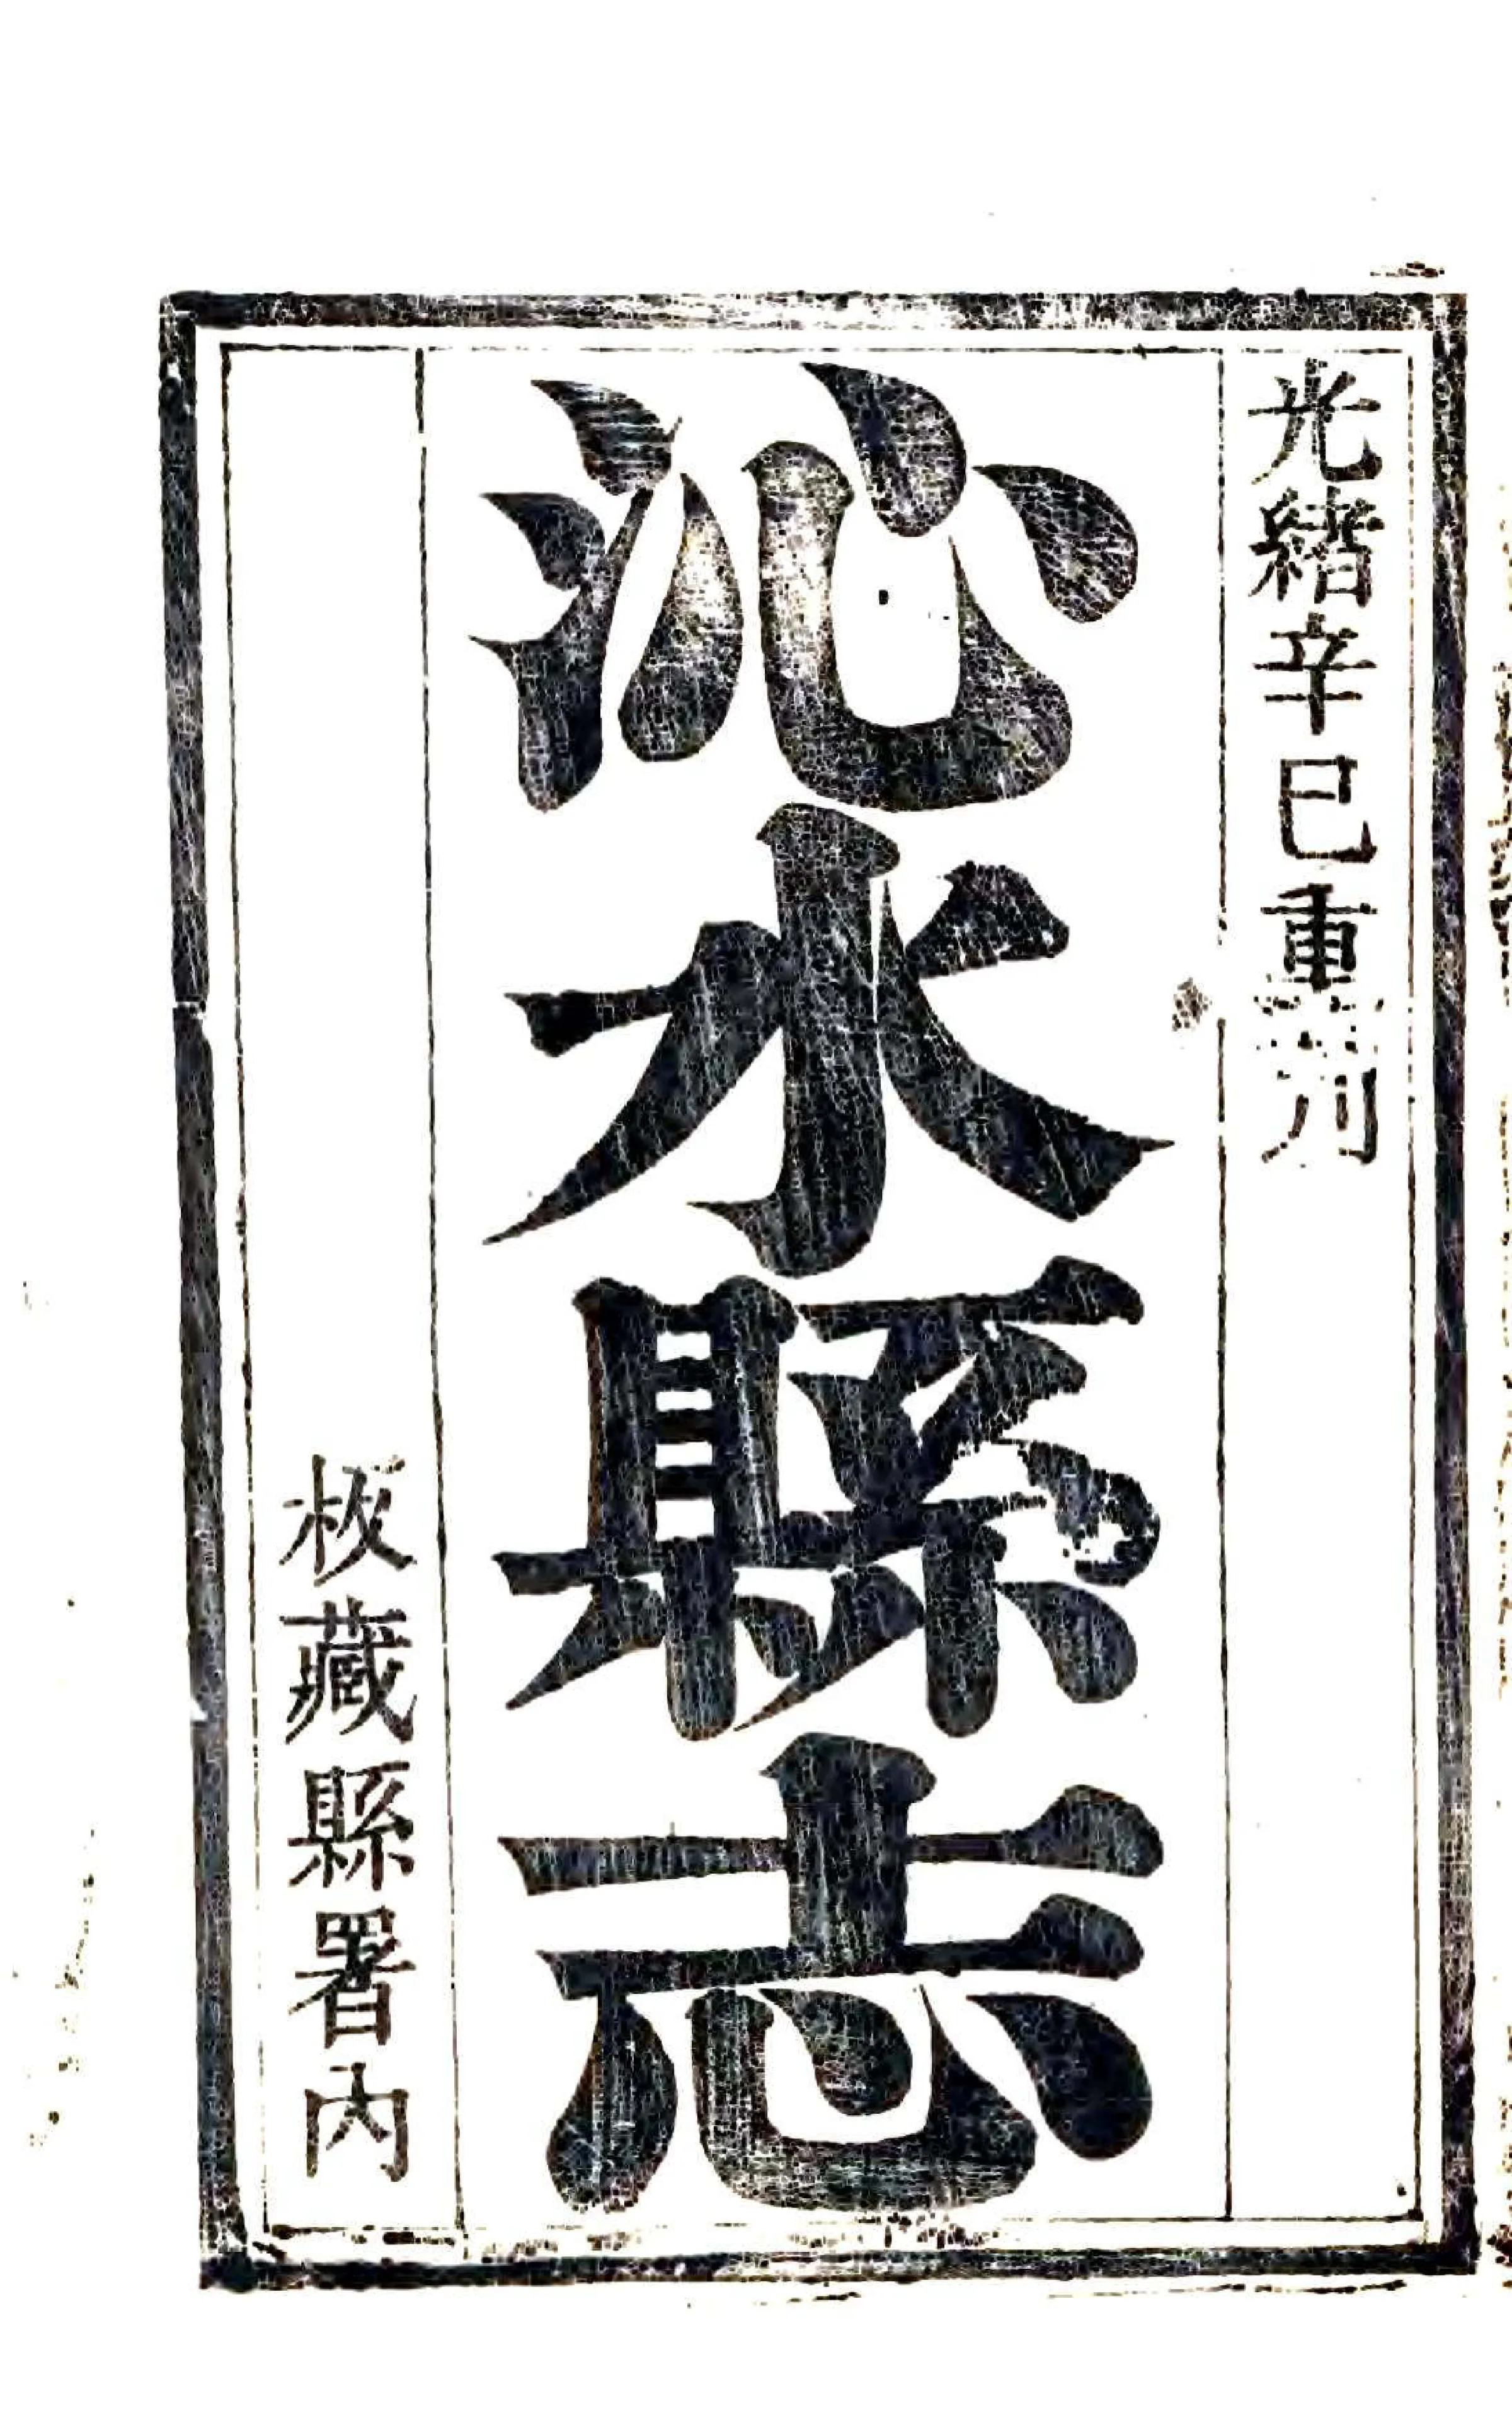 光緒辛巳重
沁水縣志
板藏縣署內